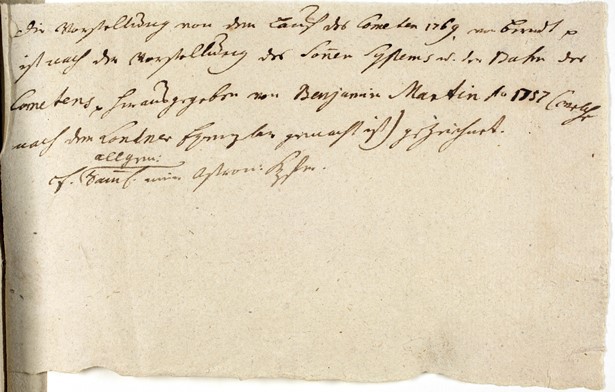 die Vorstellung von dem Lauf des Cometen 1769 von Berndt
ist nach der Vorstellung des Sonnen Systems u. der Bahn des
Cometens, herausgegeben von Benjamin Martin Ao 1757 (welche
nach dem Londner Exemplar gemacht ist) gezeichnet.
allgem:
cf. Samml. Astron: